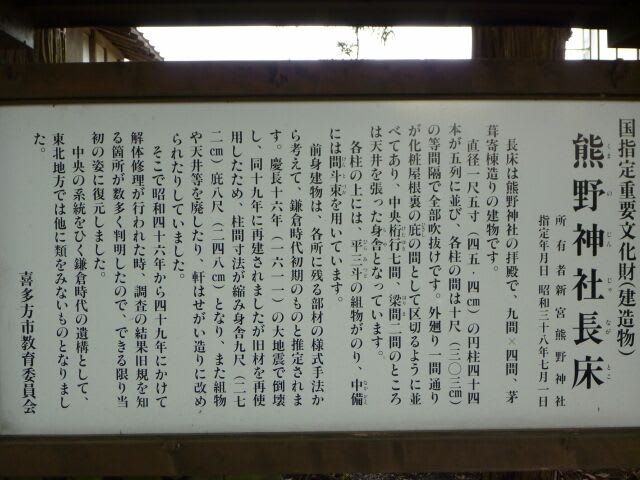 国指定重要文化財(建造物)
熊野神社長床
くまのじんじゃながとこ
所有者 新宮熊野神社
指定年月日 昭和三十八年七月一日
長床は熊野神社の拝殿で、九間×四間、茅
葺寄棟造りの建物です。
直径一尺五寸(四五・四㎝)の円柱四十四
本が五列に並び、各柱の間は十尺(三〇三㎝)
の等間隔で全部吹抜けです。外廻り一間通り
が化粧屋根裏の庇の間として区切るように並
べてあり、中央桁行七間、梁間二間のところ
は天井を張った身舎となっています。
各柱の上には、平三斗の組物がのり、中備
には間斗束を用いています。
前身建物は、各所に残る部材の様式手法か
ら考えて、鎌倉時代初期のものと推定されま
す。慶長十六年(一六一一)の大地震で倒壊
し、同十九年に再建されましたが旧材を再使
用したため、柱間寸法が縮み身舎九尺(二七
二㎝)庇八尺(二四八㎝)となり、また組物
や天井等を廃したり、軒はせがい造りに改め
られたりしていました。
そこで昭和四十六年から四十九年にかけて
解体修理が行われた時、調査の結果旧規を知
る箇所が数多く判明したので、できる限り当
初の姿に復元しました。
中央の系統をひく鎌倉時代の遺構として、
東北地方では他に類をみないものとなりまし
た。
喜多方市教育委員会